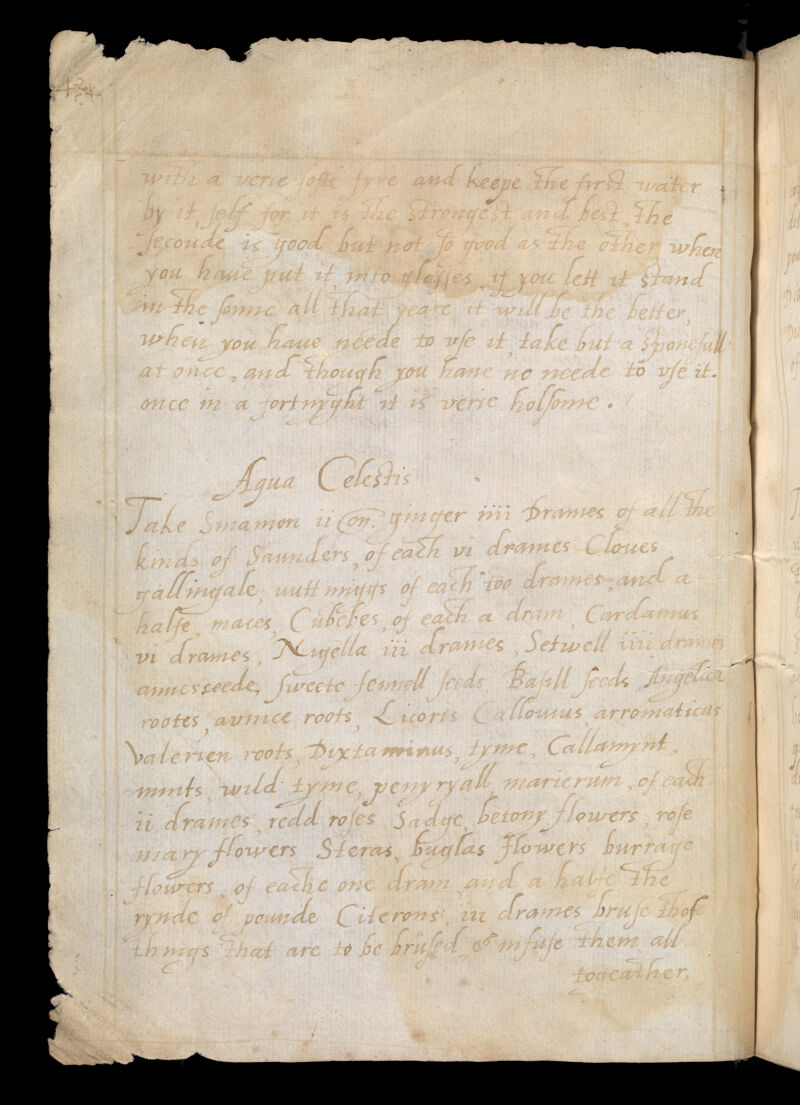 with a verie softe fyre and keepe the first water
by it self for it is the strongest and best, the
seconde is good but not so good as the other, when
you haue put it into glasses, if you lett it stand
in the sonne all that yeare it will be the better,
when you haue neede to vse it, take but a sponefull
at once, and though you haue no neede to vse it.
once in a fortnyght it is verie holsome.
Aqua Celestis
Take Sinamon ii on. ginger iiii Drames of all the
kinds of Saunders, of each vi drames Cloues
gallingale, nuttmiggs of each too drames, and a
halfe, maces, Cubebes, of each a dram, Cardamus
vi drames, Nigella iii drames, Setwell iiii drames
annesseede, sweete fennell seeds, Basill seeds, Angelica
rootes, avnice roots, Licoris Callomus arromaticus
Valerien roots, Dixtaminus, tyme, Callamynt,
mints, wild tyme, penyryall, marierum, of each
ii drames, redd roses Sadge, betony flowers, rose
mary flowers Steras, buglas flowers burrage
flowers, of eache one dram and a halfe the
rynde of pounde Citerons, iii drames bruse those
things that are to be brused, & infuse them all
togeather,